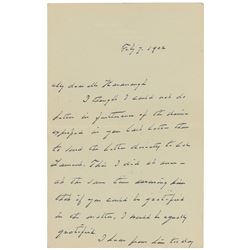 Feb 7. 1902
My dear Mr Kavanaugh
I thought I could not do
better in furtherance of the desire
expressed in your last letter than
to send the letter directly to Mr
Lamont. This I did at once
at the same time assuring him
that if you could be gratified
in the matter, I would be equally
gratified.
I hear from him to-day